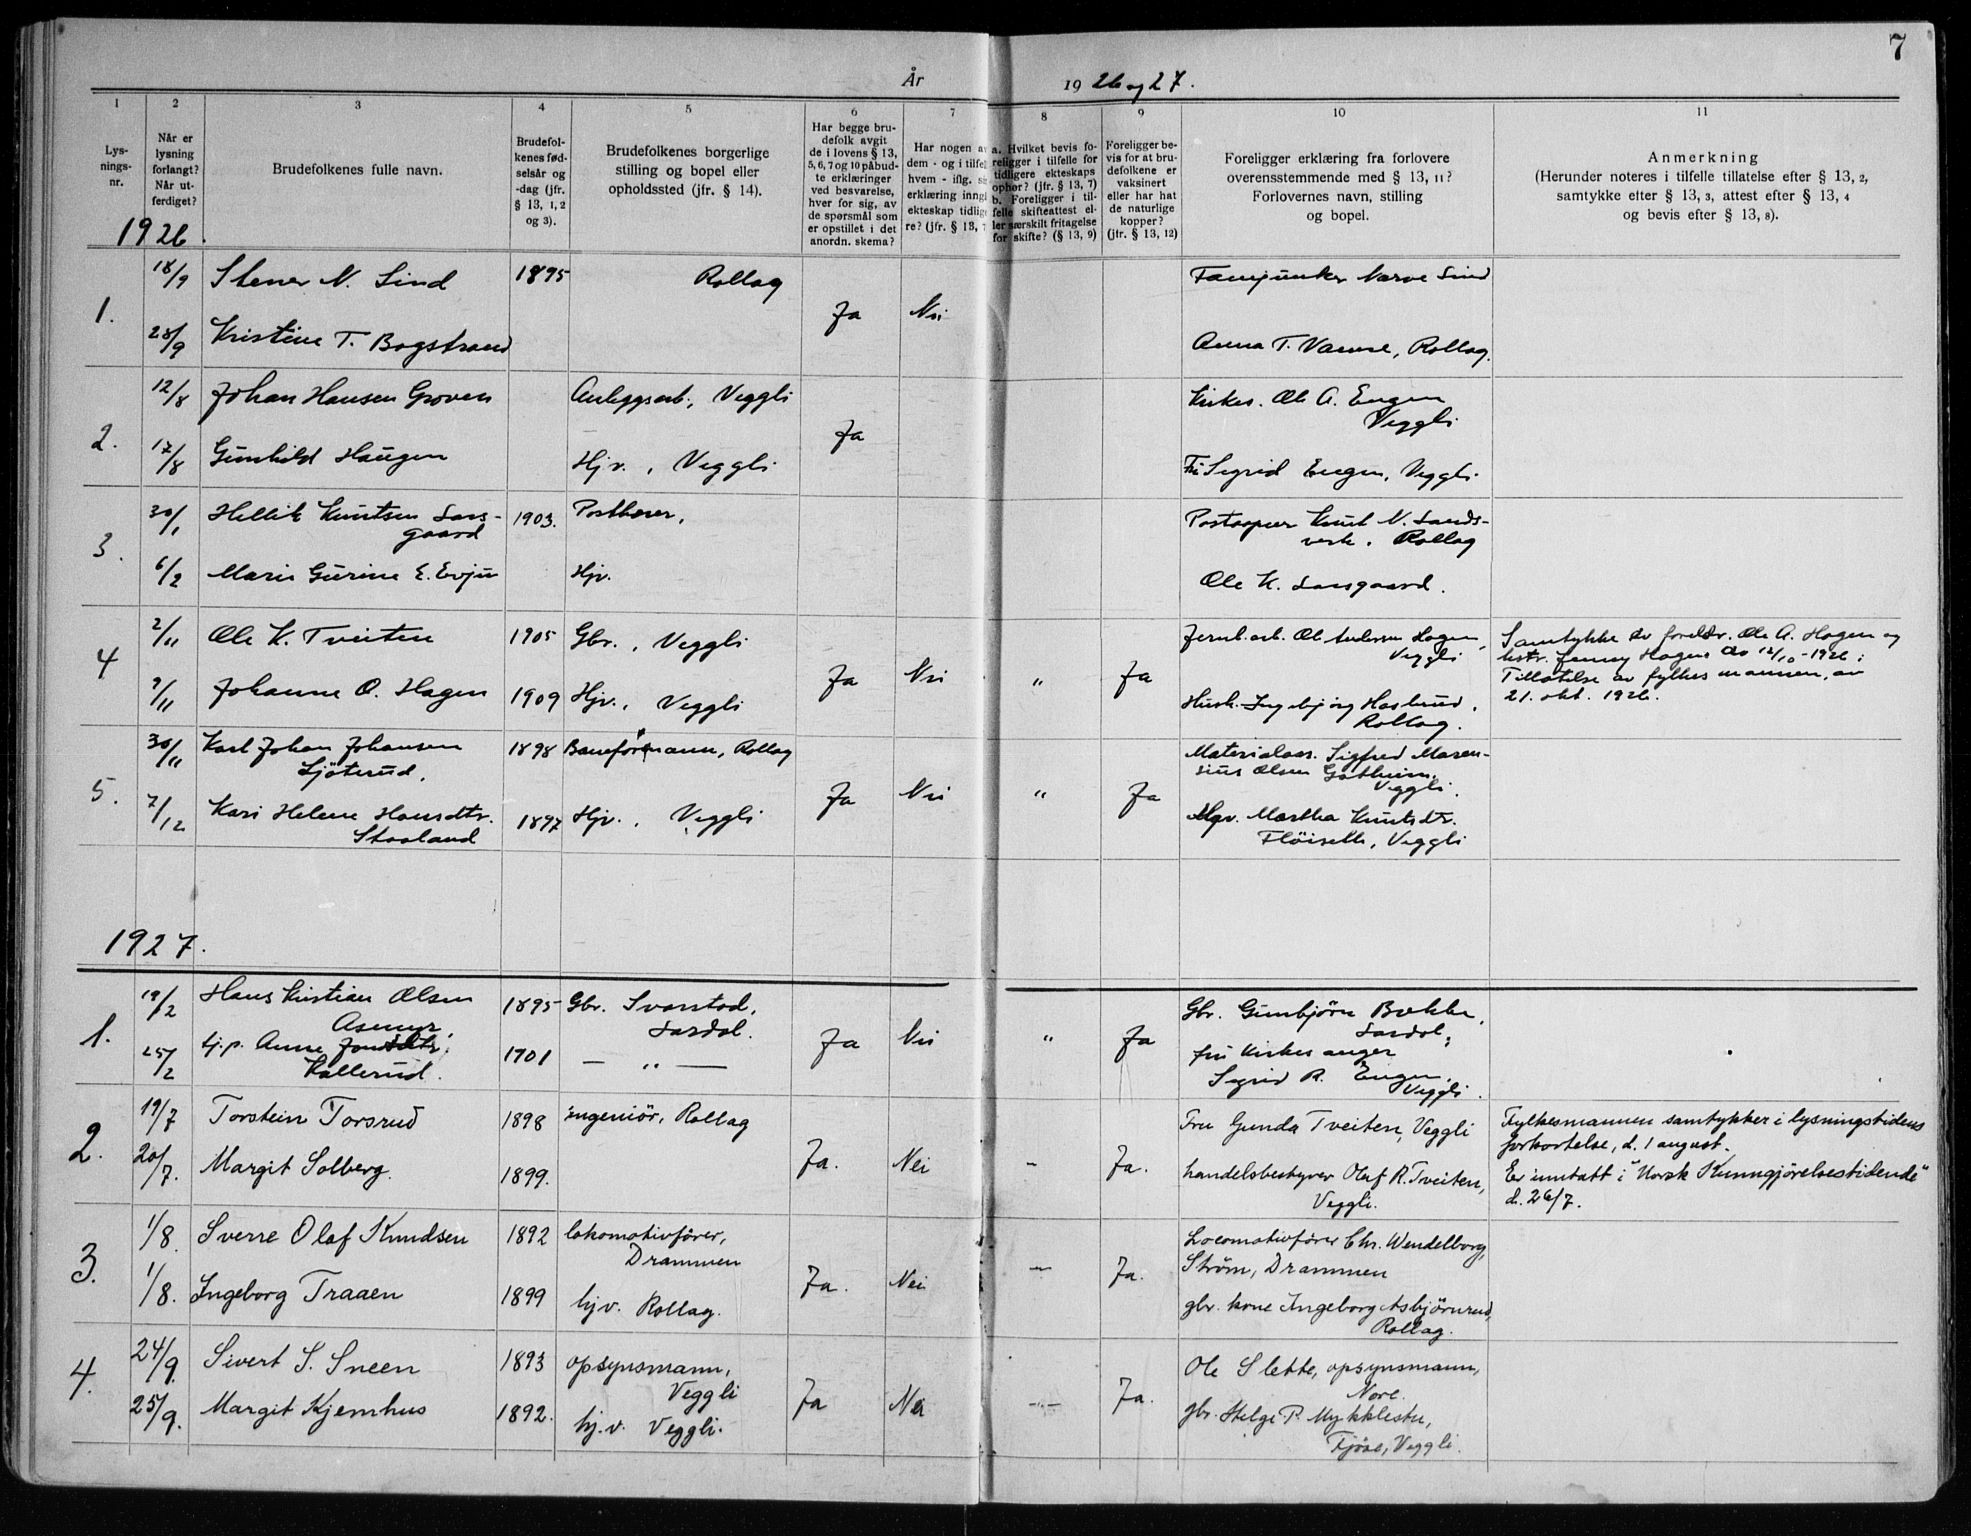 7
År 1926 og 27.
1 2 3 4 5 6 7 8 9 10 11
Lys-
nings-
nr.
Når er
lysning
forlangt?
Når ut-
ferdiget?
Brudefolkenes fulle navn.
Brudefol-
kenes fød-
selsår og
-dag (jfr.
§ 13, 1, 2
og 3).
Brudefolkenes borgerlige
stilling og bopel eller
opholdssted (jfr. § 14).
Har begge bru-
defolk avgit
de i lovens § 13,
5, 6, 7 og 10 påbud-
te erklæringer
ved besvarelse,
hver for sig, av
de spørsmål som
er opstillet i det
anordn. skema?
Har nogen av
dem - og i tilfel
hvem - iflg. si
erklæring inng
ekteskap tidlige
re? (jfr. § 13, 7
a. Hvilket bevis fo-
religger i tilfelle for
tidligere ekteskaps
ophør? (jfr. § 13, 7)
b. Foreligger i til-
felle skifteattest el-
ler særskilt fritagelse
for skifte? (§ 13, 9)
Foreligger be-
vis for at bru-
defolkene er
vaksinert
eller har hat
de naturlige
kopper?
(jfr. § 13, 12)
Foreligger erklæring fra forlovere
overensstemmende med § 13, 11?
Forlovernes navn, stilling
og bopel.
Anmerkning
(Herunder noteres i tilfelle tillatelse efter § 13, 2,
samtykke efter § 13, 3, attest efter § 13, 4
og bevis efter § 13, 8).
1926.
1.
18/9 Stener N. Lind 1895 Rollag
Ja Nei
Narve Lind
28/9 Kristine T. Bogstrand
Anna T. Vamre, Rollag.
2.
12/8 Johan Hansen Groven Anleggsarb., Veggli
Ja
Kirkes. Ole A. Engen
Veggli
17/8 Gunhild Haugen Hjv., Veggli
Fru Sigrid Engen, Veggli
3.
30/1 Hellik Knutsen Laas-
gaard 1903. Postbærer,
Knut N. Sands-
verk. Rollag
6/2 Marie Gurine E. Evju Hjv.
Ole K. Laasgaard.
4
2/11 Ole K. Tveiten 1905 Gbr., Veggli
Ja Nei " Ja
Jernb.arb. Ole Andersen Hagen,
Veggli
Samtykke av foreldr. Ole A. Hagen og
hstr. Jenny Hagen av 12/10-1926;
Tillatelse av fylkesmannen, av
21. okt. 1926.
9/11 Johanne O. Hagen 1909 Hjv., Veggli
Hush. Ingebjörg Haslerud,
Rollag.
5.
30/11 Karl Johan Johansen
Ljöterud. 1898 Baneformann, Rollag
Ja Nei " Ja
Sigfred Maren-
sius Olsen
Veggli.
7/12 Kari Helene Hansdtr.
Staaland 1897 Hjv., Veggli
Martha Knutsdtr.
Flöiseth, Veggli
1927.
1.
19/2 Hans Kristian Olsen
Asmyr, 1895 Gbr. Svarstad,
Lardal.
Ja Nei " Ja
Gbr. Gunbjörn Bække,
Lardal;
25/2 tj.p. Anne
Kallerud. 1901 — " —
fru kirkesanger
Sigrid R. Engen,
Veggli.
2.
19/7 Torstein Torsrud 1898 ingeniör, Rollag
Ja. Nei - Ja.
Fru Gunda Tveiten, Veggli
Fylkesmannen samtykker i lysningstidens
forkortelse, d. 1 august.
20/7. Margit Solberg. 1899.
handelsbestyrer Olaf R. Tveiten,
Veggli.
Er inntatt i "Norsk Kunngjörelsestidende"
d. 26/7.
3.
1/8 Sverre Olaf Knudsen 1892 lokomotivförer,
Drammen
Ja. Nei — Ja.
Locomotivförer Chr. Wendelborg,
Ström, Drammen
1/8. Ingeborg Traaen 1899 hjv. Rollag.
gbr. kone Ingeborg Asbjörnrud,
Rollag.
4.
24/9. Sivert S. Sneen 1893 opsynsmann,
Veggli
Ja Nei -"- Ja.
Ole Slette, opsynsmann,
Nore.
25/9. Margit Kjemhus 1892. hj.v. Veggli.
gbr. Helge P. Mykkkestu,
Fjöse, Veggli.